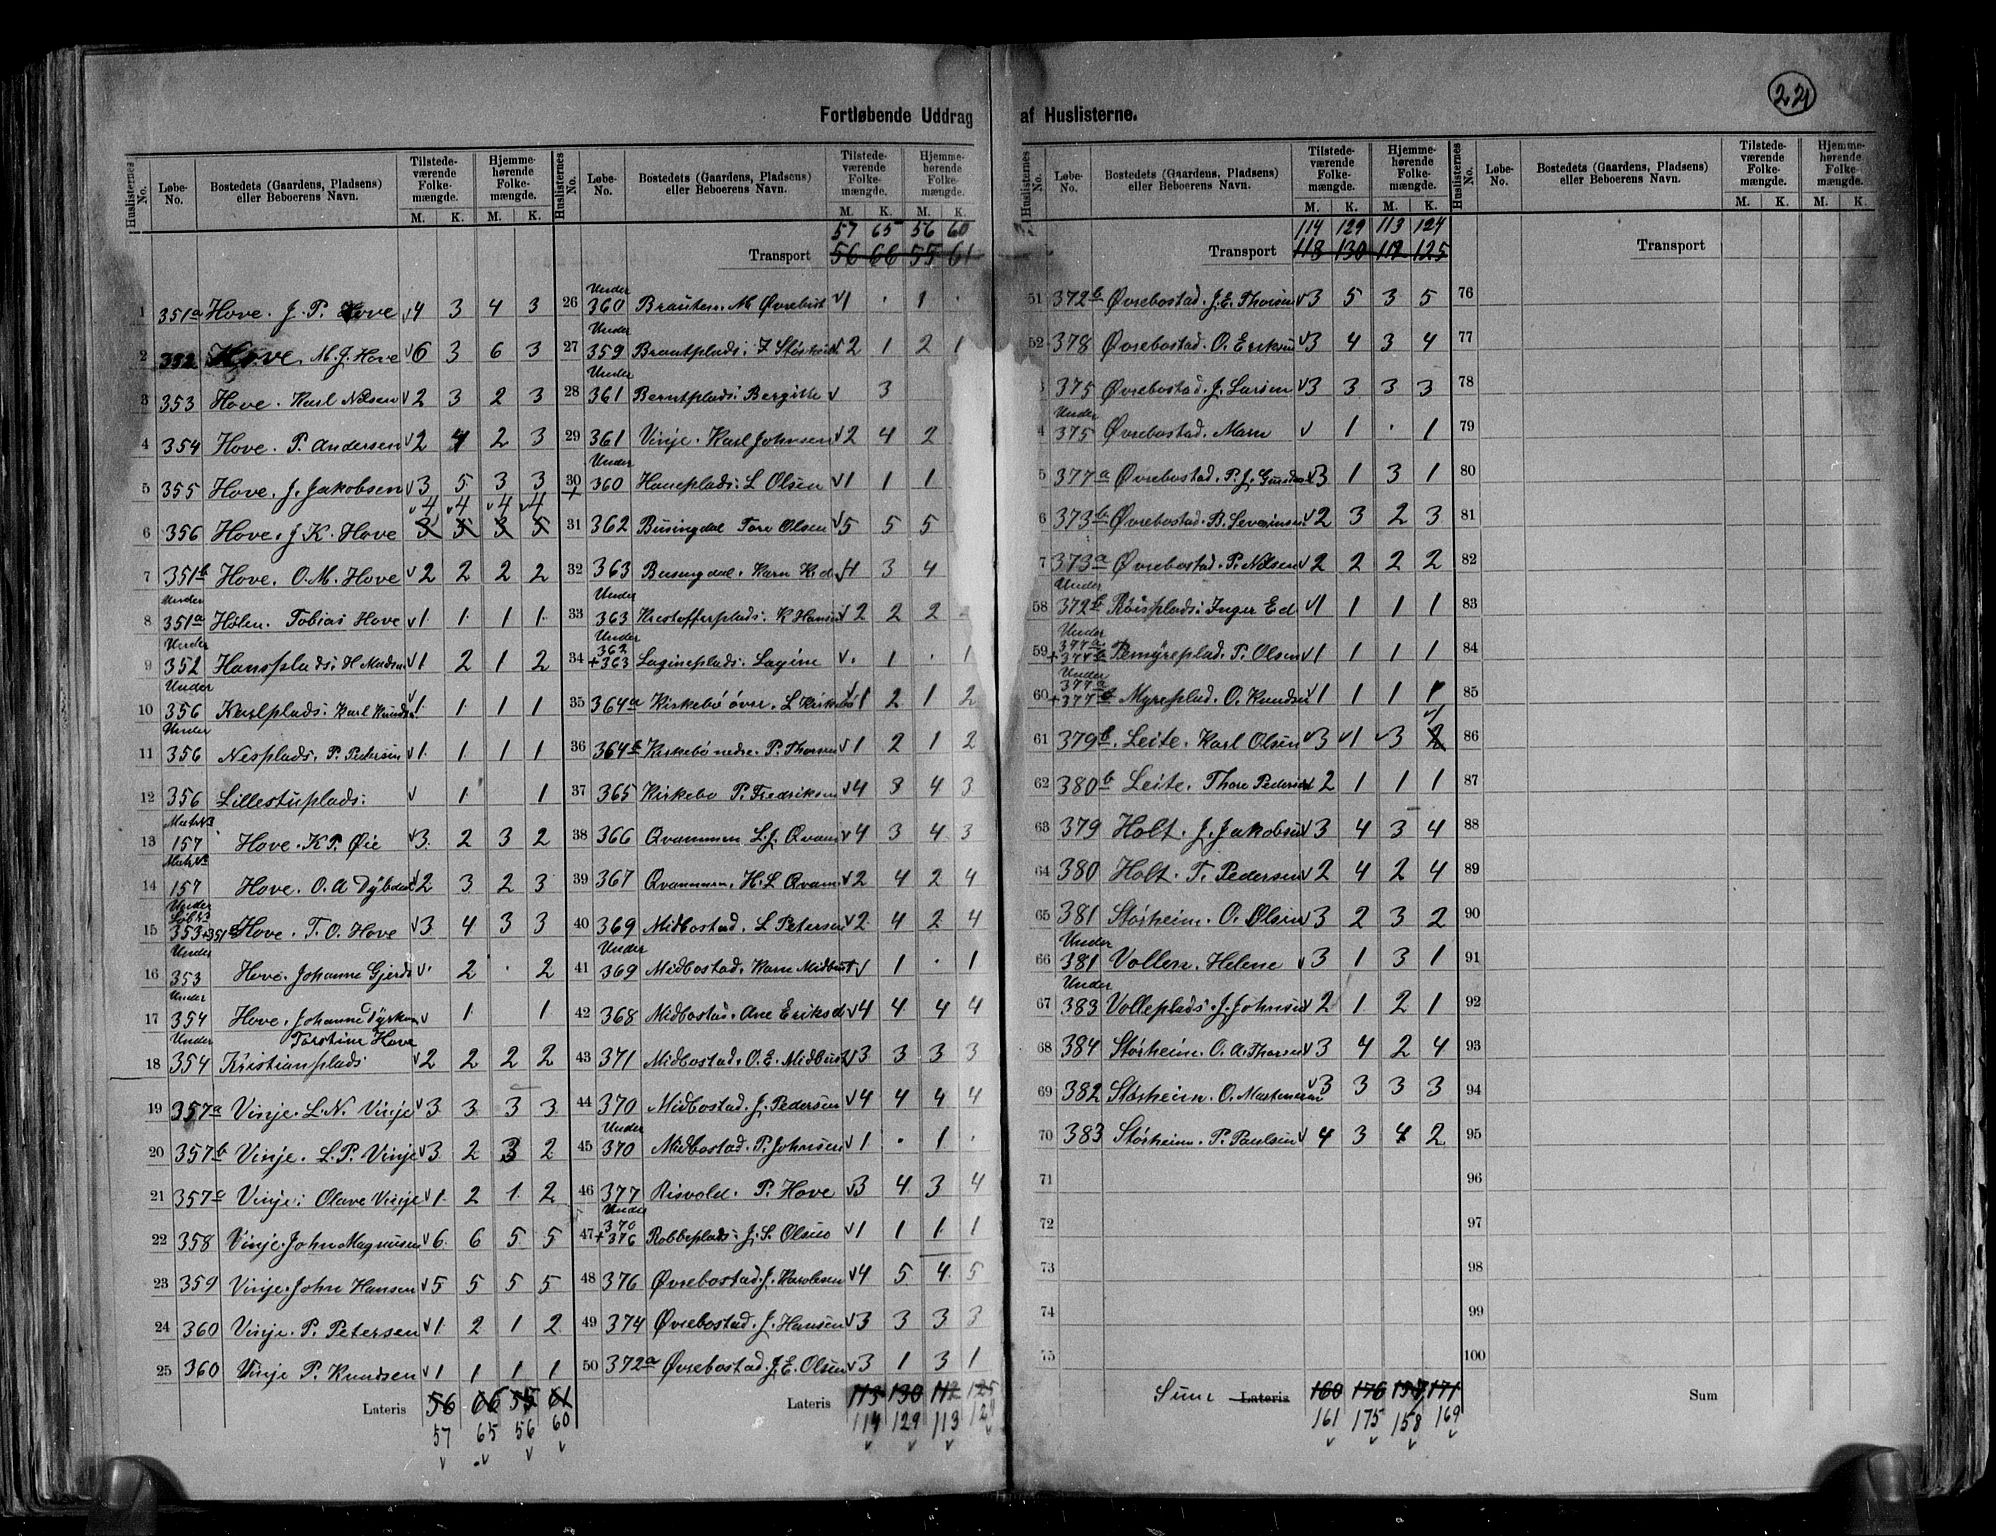 22
Fortløbende Uddrag af Huslisterne.
Huslisternes No. Løbe-No. Bostedets (Gaardens, Pladsens) eller Beboerens Navn. Tilstedeværende Folkemængde. M. K. Hjemmehørende Folkemængde. M. K.
1 351a Hove. J. P. Hove 4 3 4 3
2 352 Hove. M. J. Hove 6 3 6 3
3 353 Hove. Karl Nilsen 2 3 2 3
4 354 Hove. P. Andersen 2 4 2 3
5 355 Hove. J. Jakobsen 3 5 3 3
4 4 4 4
6 356 Hove. J. K. Hove 3 5 3 5
7 351b Hove. O. M. Hove 2 2 2 2
8 Under 351a Hølen. Tobias Hove 1 1 1 1
9 Under 352 Hansplads: H Madsen 1 2 1 2
10 Under 356 Karlplads: Karl Knudsen 1 1 1 1
11 Under 356 Nesplads. P. Pedersen 1 1 1 1
12 356 Lillestuplads: 1 1
13 Matr No 157 Hove. K P. Øie 3 2 3 2
14 Matr No 157 Hove. O. A Dybdal 2 3 2 3
15 Under Løb No 353+351 Hove. T. O. Hove 3 4 3 3
16 Under 353 Hove. Johanne Gjerds . 2 . 2
17 Under 354 Hove. Johanne 1 1
Torstein Hove
18 Under 354 Kristianplads 2 2 2 2
19 357a Vinje. L. N. Vinje 3 3 3 3
20 357b Vinje. L. P. Vinje 3 2 3 2
21 357a Vinje: Olave Vinje 1 2 1 2
22 358 Vinje. John Magnusen 6 6 5 5
23 359 Vinje. John Hansen 5 5 5 5
24 360 Vinje. P. Petersen 1 2 1 2
25 360 Vinje P. Knudsen 1 1 1 1
Lateris 56 66 55 61
57 65 56 60
Huslisternes No. Løbe-No. Bostedets (Gaardens, Pladsens) eller Beboerens Navn. Tilstedeværende Folkemængde. M. K. Hjemmehørende Folkemængde. M. K.
57 65 56 60
Transport 56 66 55 61
26 Under 360 Brauten. M. Øvrebust 1 . 1 .
27 Under 359 Brautplads: 2 1 2 1
28 Under 361 Berntplads: Bergitte 3
29 361 Vinje. Karl Johnsen 2 4 2
30 Under 360 Haneplads: L Olsen 1 1 1
31 362 Busingdal Tore Olsen 5 5 5
32 363 Busingdal. Karn K. d 4 3 4
33 Under 363 Krestofferplads: K Hansen 2 2 2
34 Under 362 +363 Lagineplads: Lagine . 1 . 1
35 364a Kirkebø øvre. L Kirkebø 1 2 1 2
36 364b Kirkebø nedre. P. Thorsen 1 2 1 2
37 365 Kirkebø P. Fredriksen 4 3 4 3
38 366 Qvammen L. J. Qvam 4 3 4 3
39 367 Qvammen. H. L Qvam 2 4 2 4
40 369 Midbostad. L Petersen 2 4 2 4
41 Under 369 Midbostad. Karn Midbust 1 . 1
42 368 Midbostad. Ane Eriksd 4 4 4 4
43 371 Midbostad. O. E. Midbust 3 3 3 3
44 370 Midbostad. J. Pedersen 4 4 4 4
45 Under 370 Midbostad. P. Johnsen 1 . 1 .
46 377 Risvold. P. Hove 3 4 3 4
47 Under 370 +376 Robbeplads: J. S. Olsen 1 1 1 1
48 376 Øvrebostad. J. Karolesen 4 5 4 5
49 374 Øvrebostad. J. Hansen 3 3 3 3
50 372a Øvrebostad. J. E. Olsen 3 1 3 1
Lateris 113 130 112 125
114 129 113 124
Huslisternes No. Løbe-No. Bostedets (Gaardens, Pladsens) eller Beboerens Navn. Tilstedeværende Folkemængde. M. K. Hjemmehørende Folkemængde. M. K.
114 129 113 124
Transport 118 130 112 125
51 372b Øvrebostad. J. E. Thorsen 3 5 3 5
52 378 Øvrebostad. O. Eriksen 3 4 3 4
3 375 Øvrebostad. J. Larsen 3 3 3 3
4 Under 375 Øvrebostad. Marn 1 . 1
5 377a Øvrebostad. P. J. 3 1 3 1
6 373b Øvrebostad. B. Severinsen 2 3 2 3
7 373a Øvrebostad. P. Nilsen 2 2 2 2
58 Under 372b Røisplads: Inger Ed 1 1 1 1
59 Under 377a +377b Pemyreplad. P. Olsen 1 1 1 1
60 Under 377a +377b Myreplad. O. Knudsen 1 1 1 1
1
61 379b Leite. Karl Olsen 3 1 3 2
62 380b Leite. Thore Pedersen 2 1 1 1
63 379 Holt. J. Jakobsen 3 4 3 4
64 380 Holt. T. Pedersen 2 4 2 4
65 381 Størheim. O. Olsen 3 2 3 2
66 Under 381 Vollen. Helene 3 1 3 1
67 Under 383 Volleplads: J. Johnsen 2 1 2 1
68 384 Størheim. O. A. Thorsen 3 4 2 4
69 382 Størheim. O. Martenusen 3 3 3 3
70 383 Størheim. P. Paulsen 4 3 4 2
71
72
73
74
75
Sum Lateris 160 176 157 171
161 175 158 169
Huslisternes No. Løbe-No. Bostedets (Gaardens, Pladsens) eller Beboerens Navn. Tilstedeværende Folkemængde. M. K. Hjemmehørende Folkemængde. M. K.
Transport
76
77
78
79
80
81
82
83
84
85
86
87
88
89
90
91
92
93
94
95
96
97
98
99
100
Sum